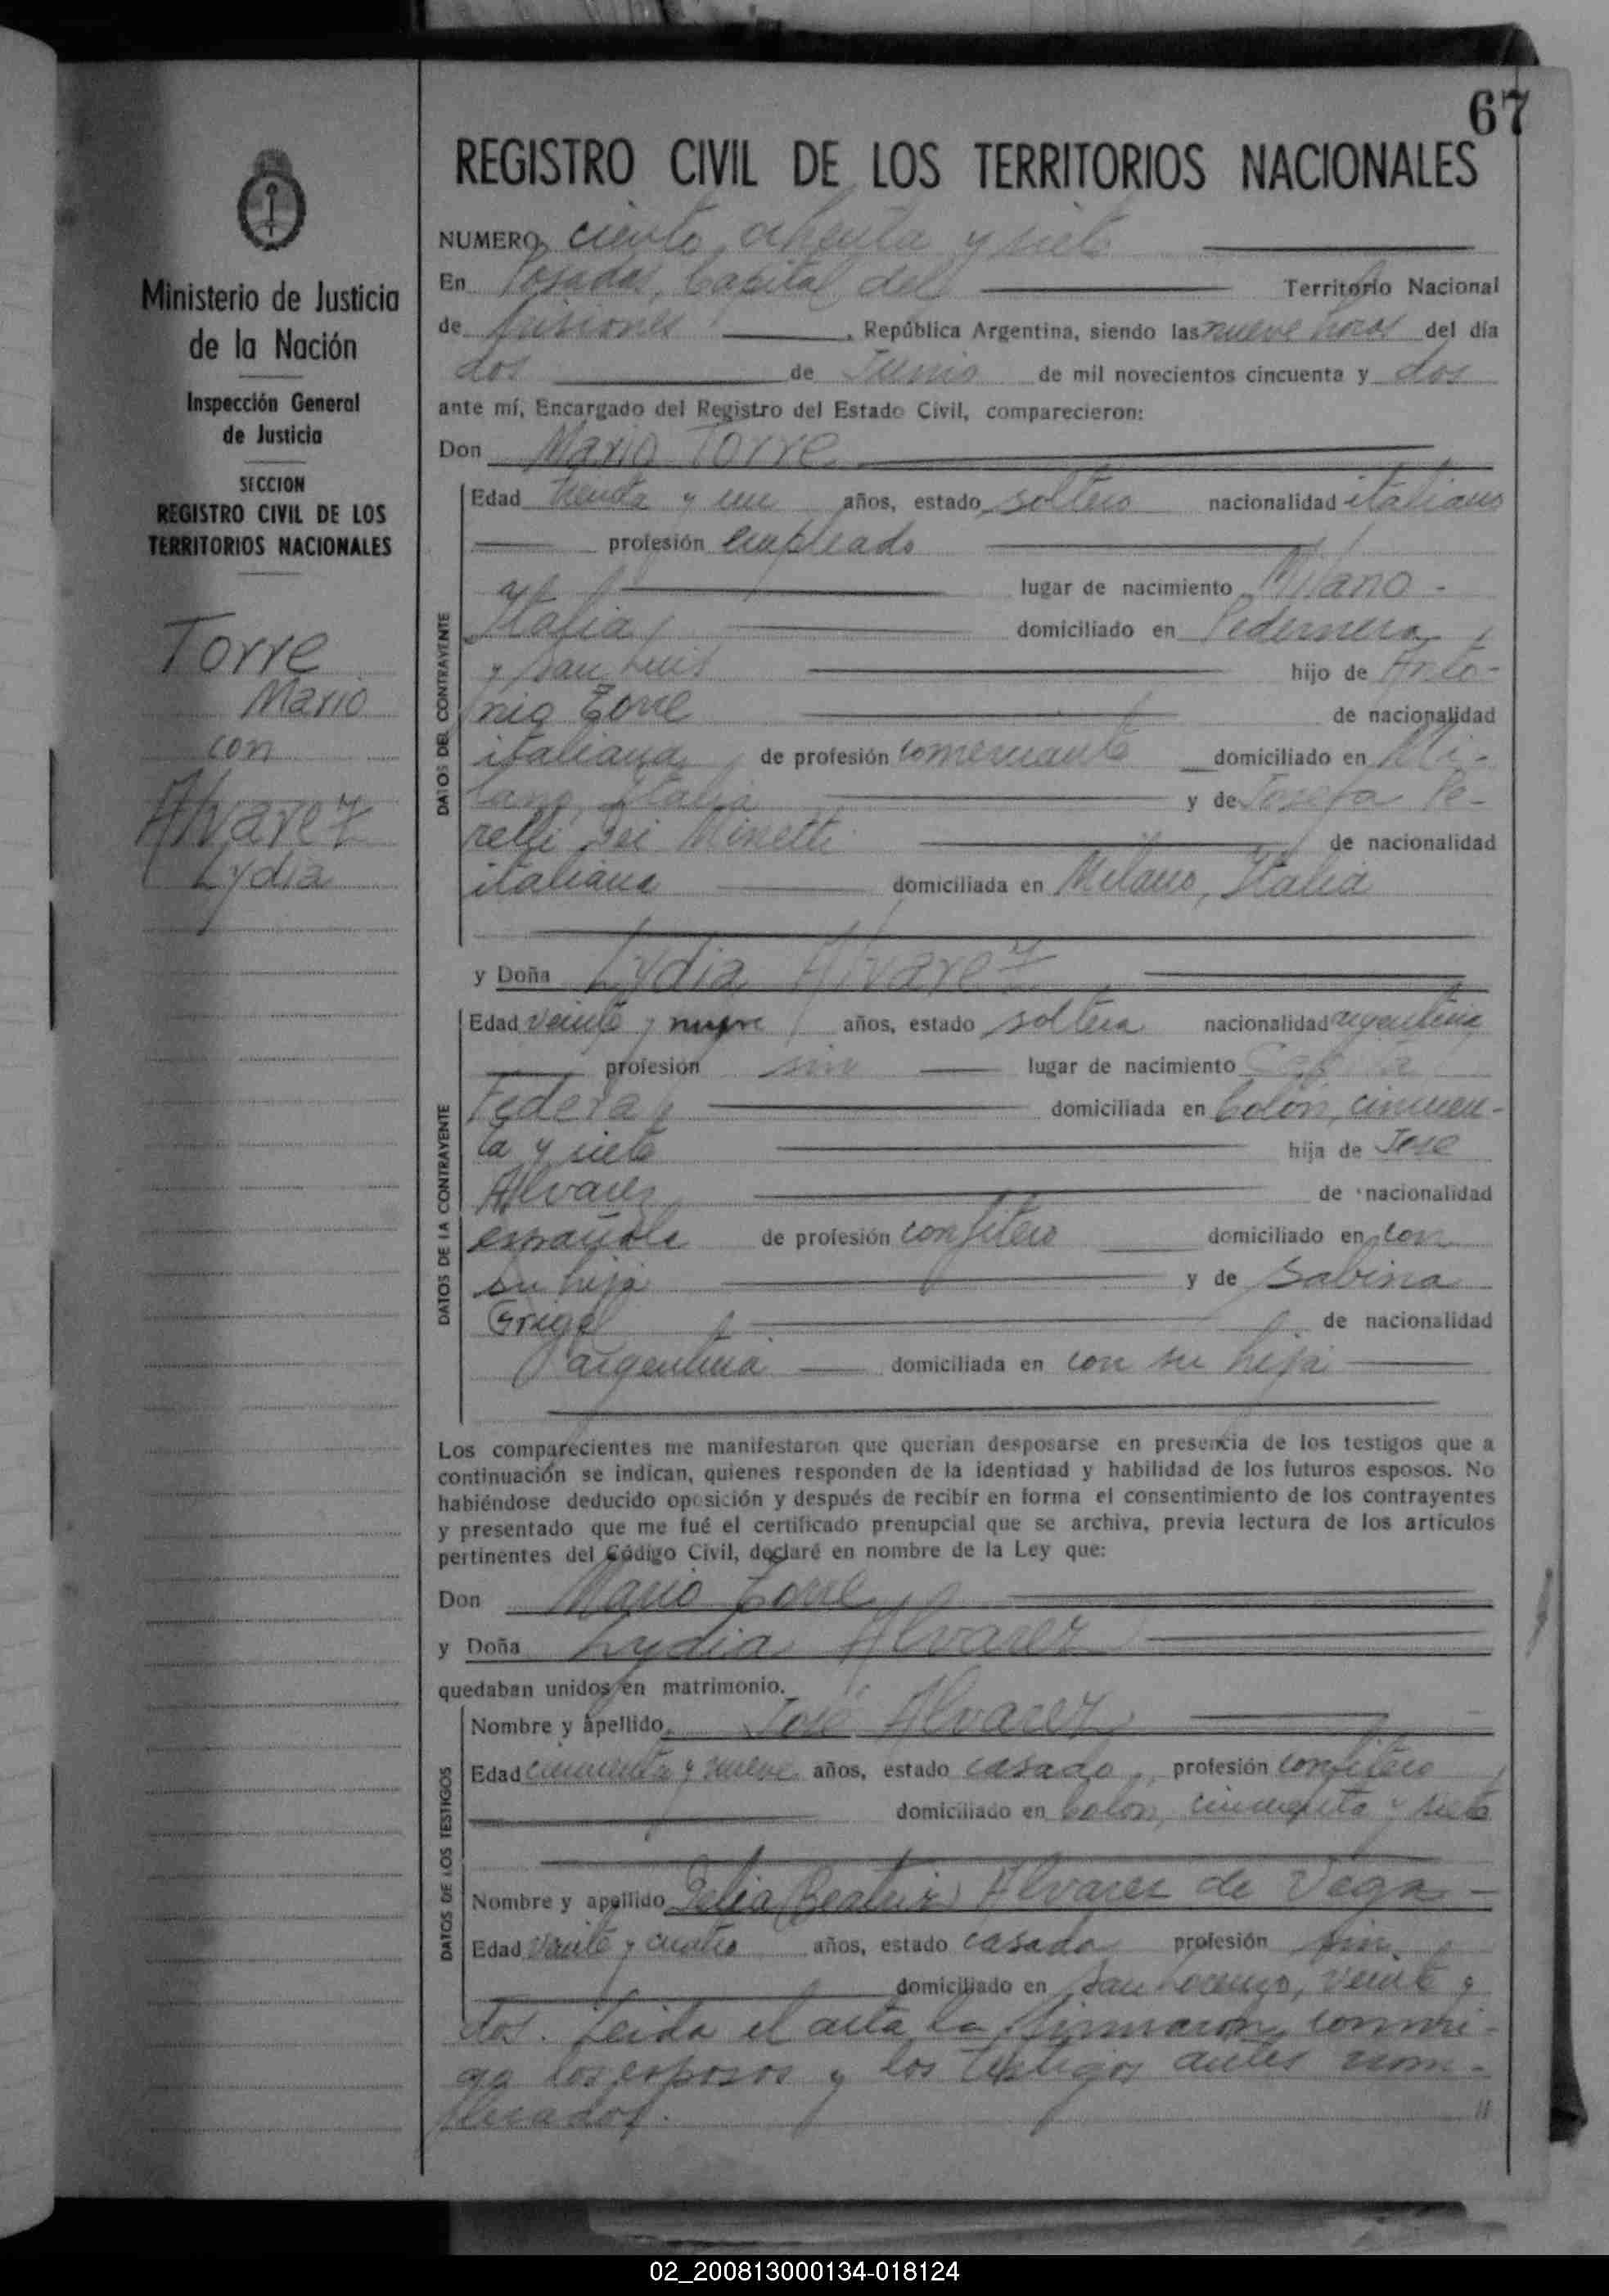 67
REGISTRO CIVIL DE LOS TERRITORIOS NACIONALES
Ministerio de Justicia
de la Nación
Inspección General
de Justicia
SECCION
REGISTRO CIVIL DE LOS
TERRITORIOS NACIONALES
Torre
Mario
con
Alvarez
Lydia
NUMERO ciento ochenta y siete
En Posadas, Capital del Territorio Nacional
de Misiones, República Argentina, siendo las nueve horas del día
dos de Junio de mil novecientos cincuenta y dos
ante mí, Encargado del Registro del Estado Civil, comparecieron:
Don Mario Torre
DATOS DEL CONTRAYENTE
Edad treinta y un años, estado soltero nacionalidad italiano
profesión empleado
lugar de nacimiento Milano -
Italia domiciliado en Pedernera
y San Luis hijo de Anto-
nio Torre de nacionalidad
italiana de profesión comerciante domiciliado en Mi-
lano, Italia y de Josefa Pe-
relli Dei Minetti de nacionalidad
italiana domiciliada en Milano, Italia
y Doña Lydia Alvarez
DATOS DE LA CONTRAYENTE
Edad veinte y nueve años, estado soltera nacionalidad argentina
profesión sin lugar de nacimiento Capital
Federal domiciliada en Colón, cincuen-
ta y siete hija de José
Alvarez de nacionalidad
española de profesión confitero domiciliado en con
su hija y de Sabina
de nacionalidad
argentina domiciliada en con su hija
Los comparecientes me manifestaron que querían desposarse en presencia de los testigos que a
continuación se indican, quienes responden de la identidad y habilidad de los futuros esposos. No
habiéndose deducido oposición y después de recibir en forma el consentimiento de los contrayentes
y presentado que me fué el certificado prenupcial que se archiva, previa lectura de los artículos
pertinentes del Código Civil, declaré en nombre de la Ley que:
Don Mario Torre
y Doña Lydia Alvarez
quedaban unidos en matrimonio.
DATOS DE LOS TESTIGOS
Nombre y apellido José Alvarez
Edad cincuenta y nueve años, estado casado, profesión confitero
domiciliado en Colón, cincuenta y siete
Nombre y apellido Delia Beatriz Alvarez de Vega -
Edad veinte y cuatro años, estado casada profesión sin
domiciliado en San Lorenzo, veinte y
dos. Leida el acta la firmaron conmi-
go los esposos y los testigos antes nom-
brados.
02_200813000134-018124